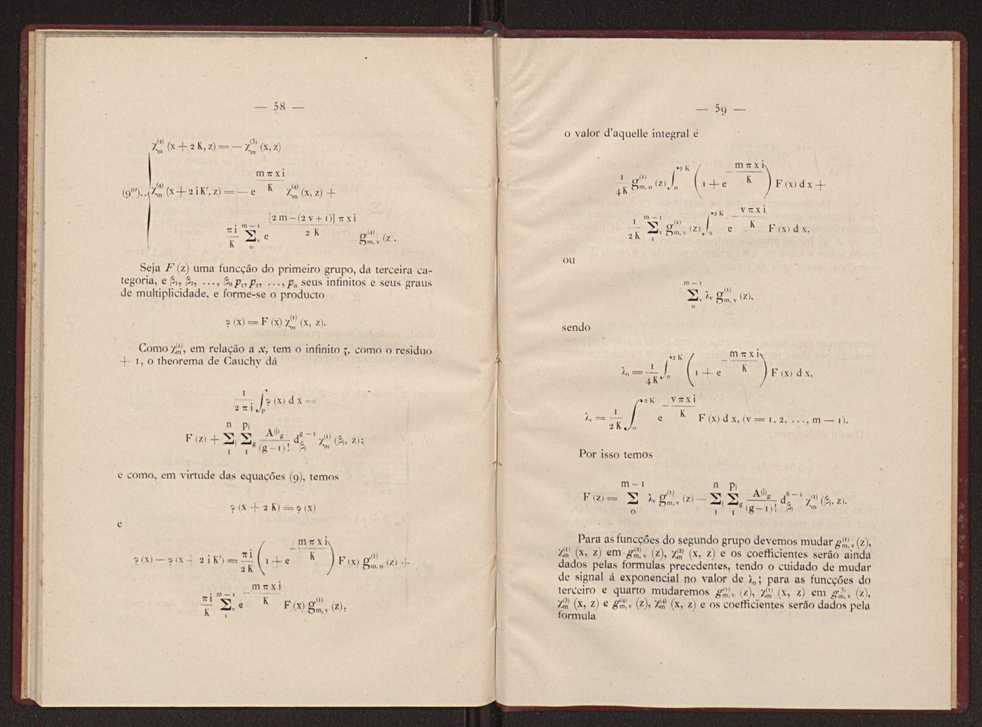 — 58 —
χ_m^(4) (x + 2 K, z) = — χ_m^(3) (x, z)
(9''')..
χ_m^(4) (x + 2 i K', z) = — e^{m π x i / K} χ_m^(4) (x, z) +
π i / K Σ_v_0^{m — 1} e^{[2 m — (2 v + 1)] π x i / 2 K} g_{m, v}^(4) (z).
Seja F (z) uma funcção do primeiro grupo, da terceira ca-
tegoria, e ξ₁, ξ₂, ..., ξₙ p₁, p₂, ..., pₙ seus infinitos e seus graus
de multiplicidade, e forme-se o producto
φ (x) = F (x) χ_m^(1) (x, z).
Como χ_m^(1), em relação a x, tem o infinito z, como o residuo
+ 1, o theorema de Cauchy dá
1 / 2 π i ∫_p φ (x) d x =
F (z) + Σ_j_1^n Σ_g_1^{p_j} A_g^(j) / (g — 1)! d_{ξ_j}^{g — 1} χ_m^(1) (ξ_j, z);
e como, em virtude das equações (9), temos
φ (x + 2 K) = φ (x)
e
φ (x) — φ (x + 2 i K') = π i / 2 K (1 + e^{— m π x i / K}) F (x) g_{m, 0}^(1) (z) +
π i / K Σ_v_1^{m — 1} e^{— m π x i / K} F (x) g_{m, v}^(1) (z),
— 59 —
o valor d'aquelle integral é
1 / 4 K g_{m, 0}^(1) (z) ∫_0^{2 K} (1 + e^{— m π x i / K}) F (x) d x +
1 / 2 K Σ_v_1^{m — 1} g_{m, v}^(1) (z) ∫_0^{2 K} e^{— v π x i / K} F (x) d x,
ou
Σ_v_0^{m — 1} λ_v g_{m, v}^(1) (z),
sendo
λ₀ = 1 / 4 K ∫_0^{2 K} (1 + e^{— m π x i / K}) F (x) d x,
λ_v = 1 / 2 K ∫_0^{2 K} e^{— v π x i / K} F (x) d x, (v = 1, 2, ..., m — 1).
Por isso temos
F (z) = Σ_0^{m — 1} λ_v g_{m, v}^(1) (z) — Σ_j_1^n Σ_g_1^{p_j} A_g^(j) / (g — 1)! d_{ξ_j}^{g — 1} χ_m^(1) (ξ_j, z).
Para as funcções do segundo grupo devemos mudar g_{m, v}^(1) (z),
χ_m^(1) (x, z) em g_{m, v}^(2) (z), χ_m^(2) (x, z) e os coefficientes serão ainda
dados pelas formulas precedentes, tendo o cuidado de mudar
de signal á exponencial no valor de λ₀; para as funcções do
terceiro e quarto mudaremos g_{m, v}^(1) (z), χ_m^(1) (x, z) em g_{m, v}^(3) (z),
χ_m^(3) (x, z) e g_{m, v}^(4) (z), χ_m^(4) (x, z) e os coefficientes serão dados pela
formula